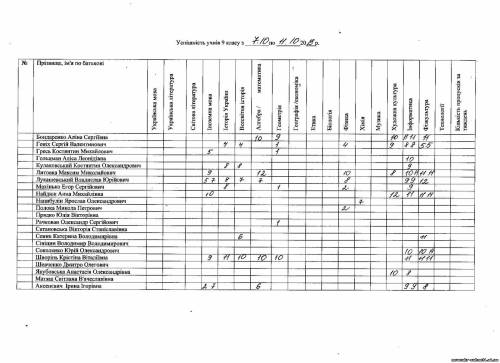 Успішність учнів 9 класу з 7.10 по 11.10 20 р.
№ Прізвище, ім'я по батькові Українська мова Українська література Світова література Іноземна мова Історія України Всесвітня історія Алгебра / математика Геометрія Географія /економіка Етика Біологія Фізика Хімія Музика Художня культура Інформатика Фізкультура Технології Кількість пропусків за тиждень
Бондаренко Аліна Сергіївна 10 9 10 11 11 11
Геніх Сергій Валентинович 4 4 1 4 9 8 8 5 5
Гресь Костянтин Михайлович 5 1
Гольцман Аліса Леонідівна 10
Куликовський Костянтин Олександрович 8 8 9
Литовка Максим Миколайович 9 12 10 8 10 11 11 11
Лукановський Владислав Юрійович 5 7 8 7 7 8 9 9 12
Мохінько Егор Сергійович 8 1 2 9
Найдюк Анна Михайлівна 10 12 11 11 11
Нашибулін Ярослав Олександрович 7
Полока Микола Петрович 2
Придко Юлія Вікторівна
Олександр Сергійович 1
Сатановська Вікторія Станіславівна
Співак Катерина Володимирівна 6 11
Спіцин Володимир Володимирович
Соколенко Юрій Олександрович 10 10 11
Шворінь Крістіна Віталіївна 9 11 10 10 10 11 11 11
Шевченко Дмитро Олегович
Якубовська Анастасія Олександрівна 10 8
Матяш Світлана В'ячеславівна
Аксеневич Ірина Ігорівна 2 7 6 9 9 8